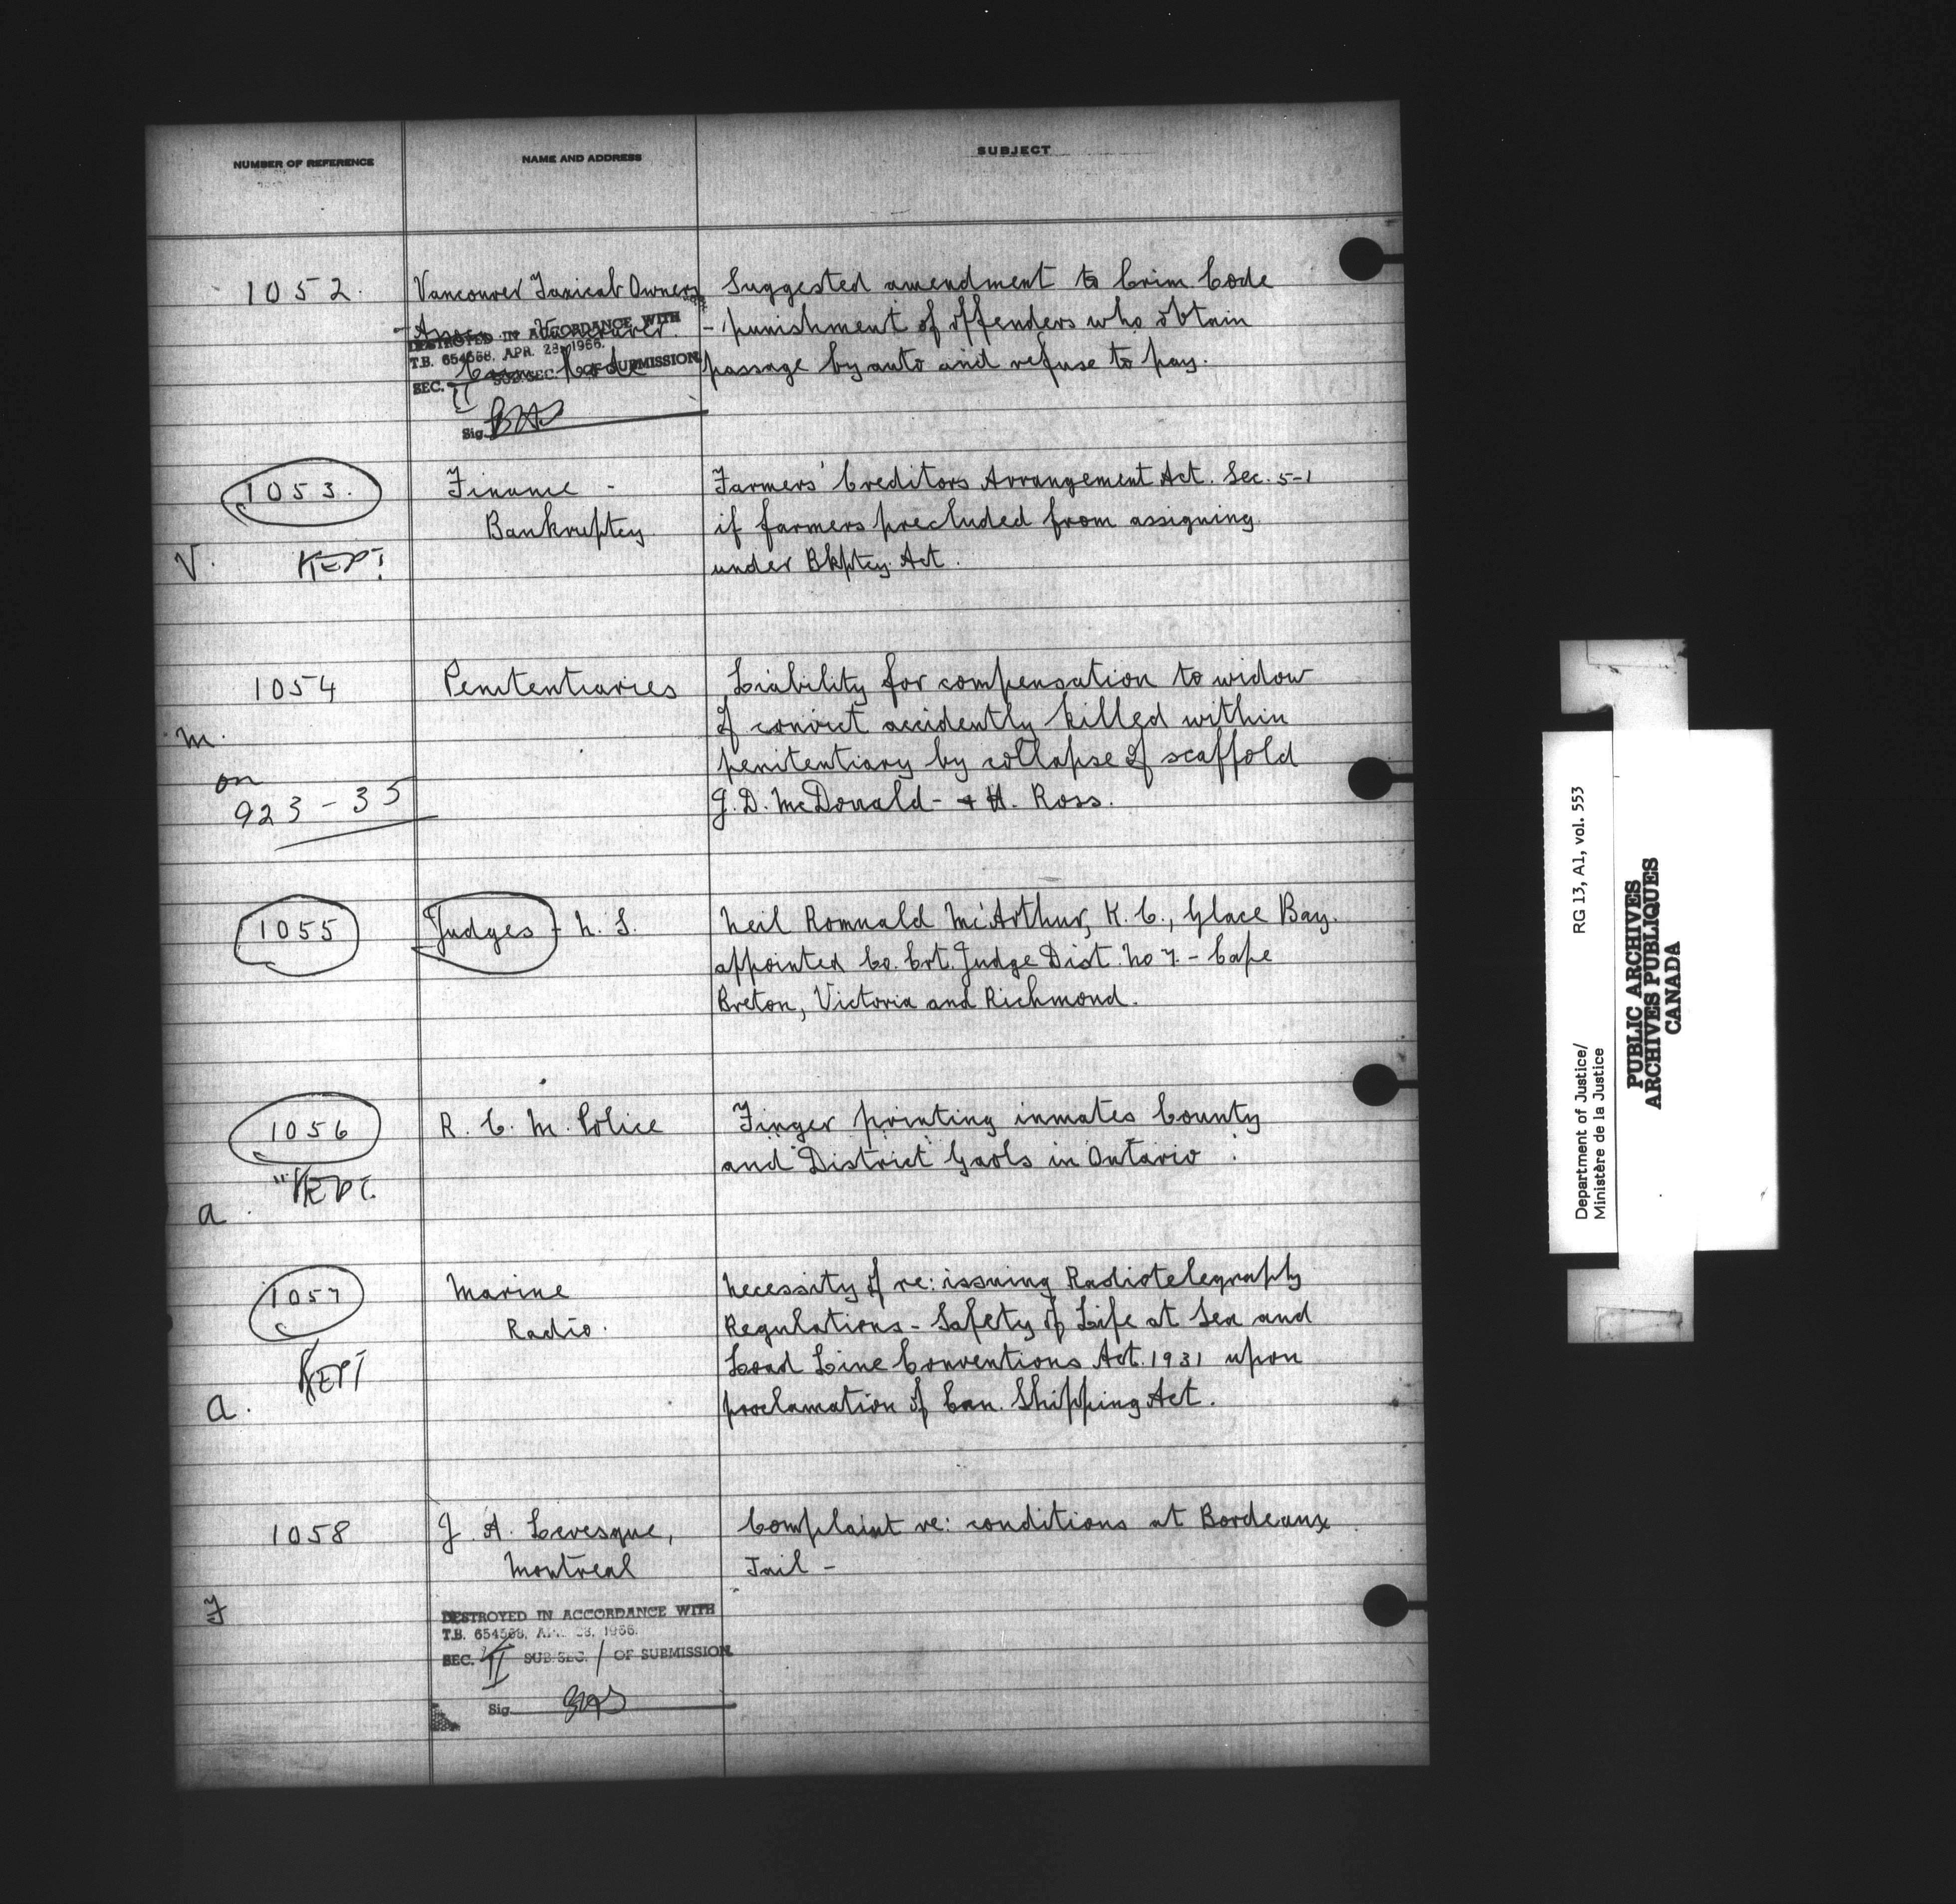 NUMBER OF REFERENCE NAME AND ADDRESS SUBJECT
1052. Vancouver Taxicab Owners Suggested amendment to Crim Code
- Assn. Vancouver. - punishment of offenders who obtain
Crim Code passage by auto and refuse to pay.
DESTROYED IN ACCORDANCE WITH
T.B. 654568, APR. 28, 1966.
SEC. II SUB.SEC. OF SUBMISSION
Sig.
1053. Finance - Farmers' Creditors Arrangement Act. Sec. 5-1
Bankruptcy. if farmers precluded from assigning
V. KEPT under Bkptcy. Act.
1054 Penitentiaries Liability for compensation to widow
m. of convict accidently killed within
on penitentiary by collapse of scaffold
923-35 J. D. McDonald - + H. Ross.
1055 Judges - N. S. Neil Romuald McArthur, K. C., Glace Bay.
appointed Co. Crt. Judge Dist. No 7. - Cape
Breton, Victoria and Richmond.
1056 R. C. M. Police Finger printing inmates County
"KEPT. and District Gaols in Ontario.
a.
1057 Marine Necessity of re: issuing Radiotelegraph
Radio. Regulations - Safety of Life at Sea and
KEPT Load Line Conventions Act. 1931 upon
a. proclamation of Can. Shipping Act.
1058 J. A. Levesque, Complaint re: conditions at Bordeaux
Montreal Jail -
J
DESTROYED IN ACCORDANCE WITH
T.B. 654568, APR. 28, 1966.
SEC. II SUB.SEC. / OF SUBMISSION
Sig.
Department of Justice/ RG 13, A1, vol. 553
Ministère de la Justice
PUBLIC ARCHIVES
ARCHIVES PUBLIQUES
CANADA